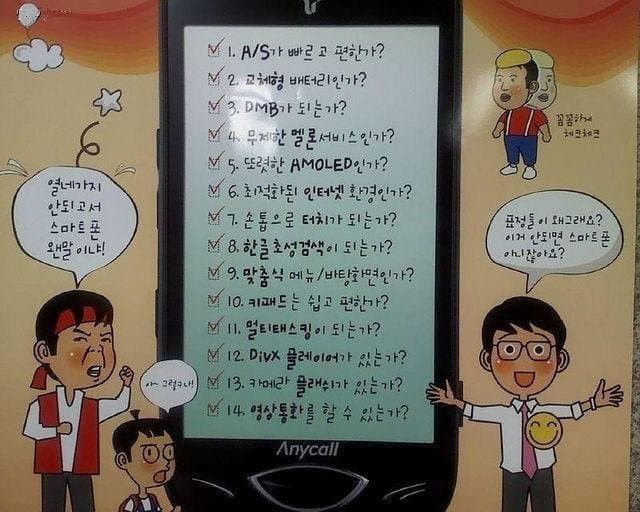 1. A/S가 빠르고 편한가?
2. 교체형 배터리인가?
3. DMB가 되는가?
4. 무제한 멜론서비스인가?
5. 또렷한 AMOLED인가?
6. 최적화된 인터넷 환경인가?
7. 손톱으로 터치가 되는가?
8. 한글초성검색이 되는가?
9. 맞춤식 메뉴/바탕화면인가?
10. 키패드는 쉽고 편한가?
11. 멀티태스킹이 되는가?
12. DivX 플레이어가 있는가?
13. 카메라 플래쉬가 있는가?
14. 영상통화를 할 수 있는가?
Anycall
꼼꼼하게
체크체크
열네가지
안되고서
스마트폰
왠말이냐!
아~ 그렇구나!
표정들이 왜그래요?
이거 안되면 스마트폰
아니잖아요?